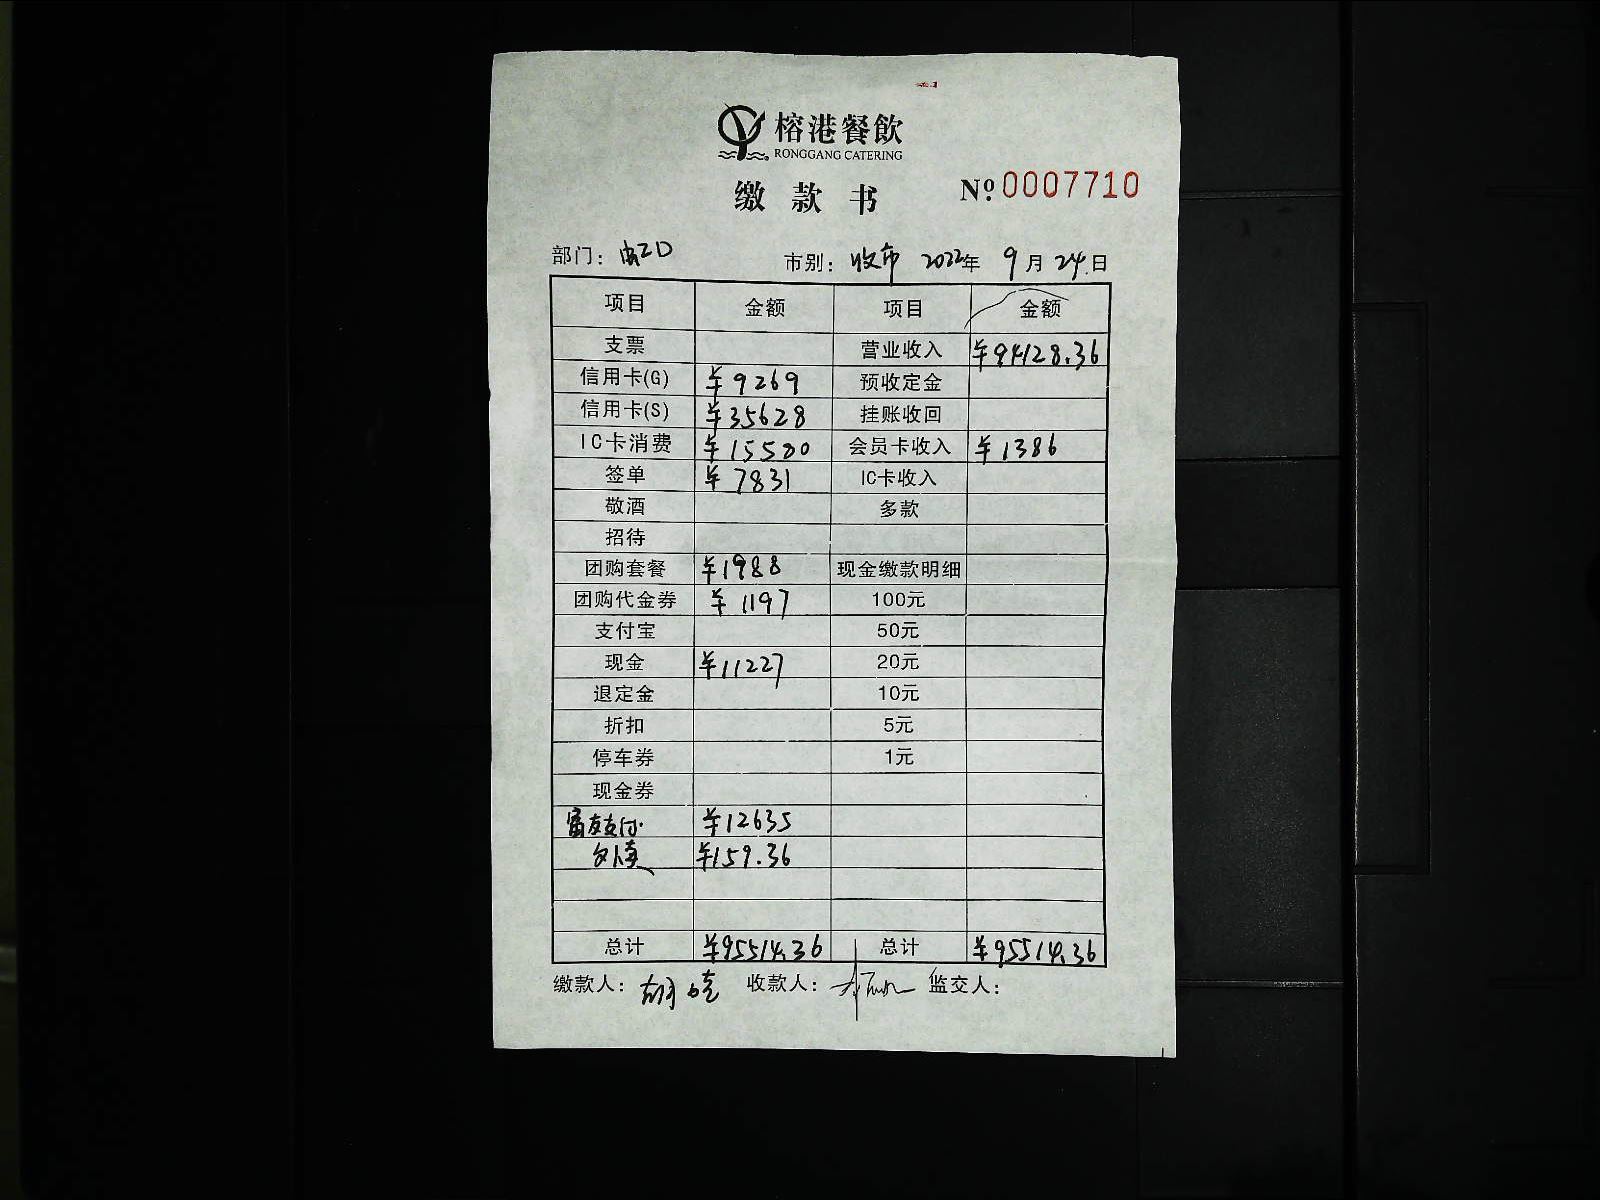 榕港餐飲
RONGGANG CATERING
缴款书
№ 0007710
部门： 市别：收市 2022年 9月 24日
项目 金额 项目 金额
支票 营业收入 ¥94128.36
信用卡(G) ¥9269 预收定金
信用卡(S) ¥35628 挂账收回
IC卡消费 ¥15580 会员卡收入 ¥1386
签单 ¥7831 IC卡收入
敬酒 多款
招待
团购套餐 ¥1988 现金缴款明细
团购代金券 ¥1197 100元
支付宝 50元
现金 ¥11227 20元
退定金 10元
折扣 5元
停车券 1元
现金券
富友支付 ¥12635
外卖 ¥159.36
总计 ¥95514.36 总计 ¥95514.36
缴款人： 收款人： 监交人：